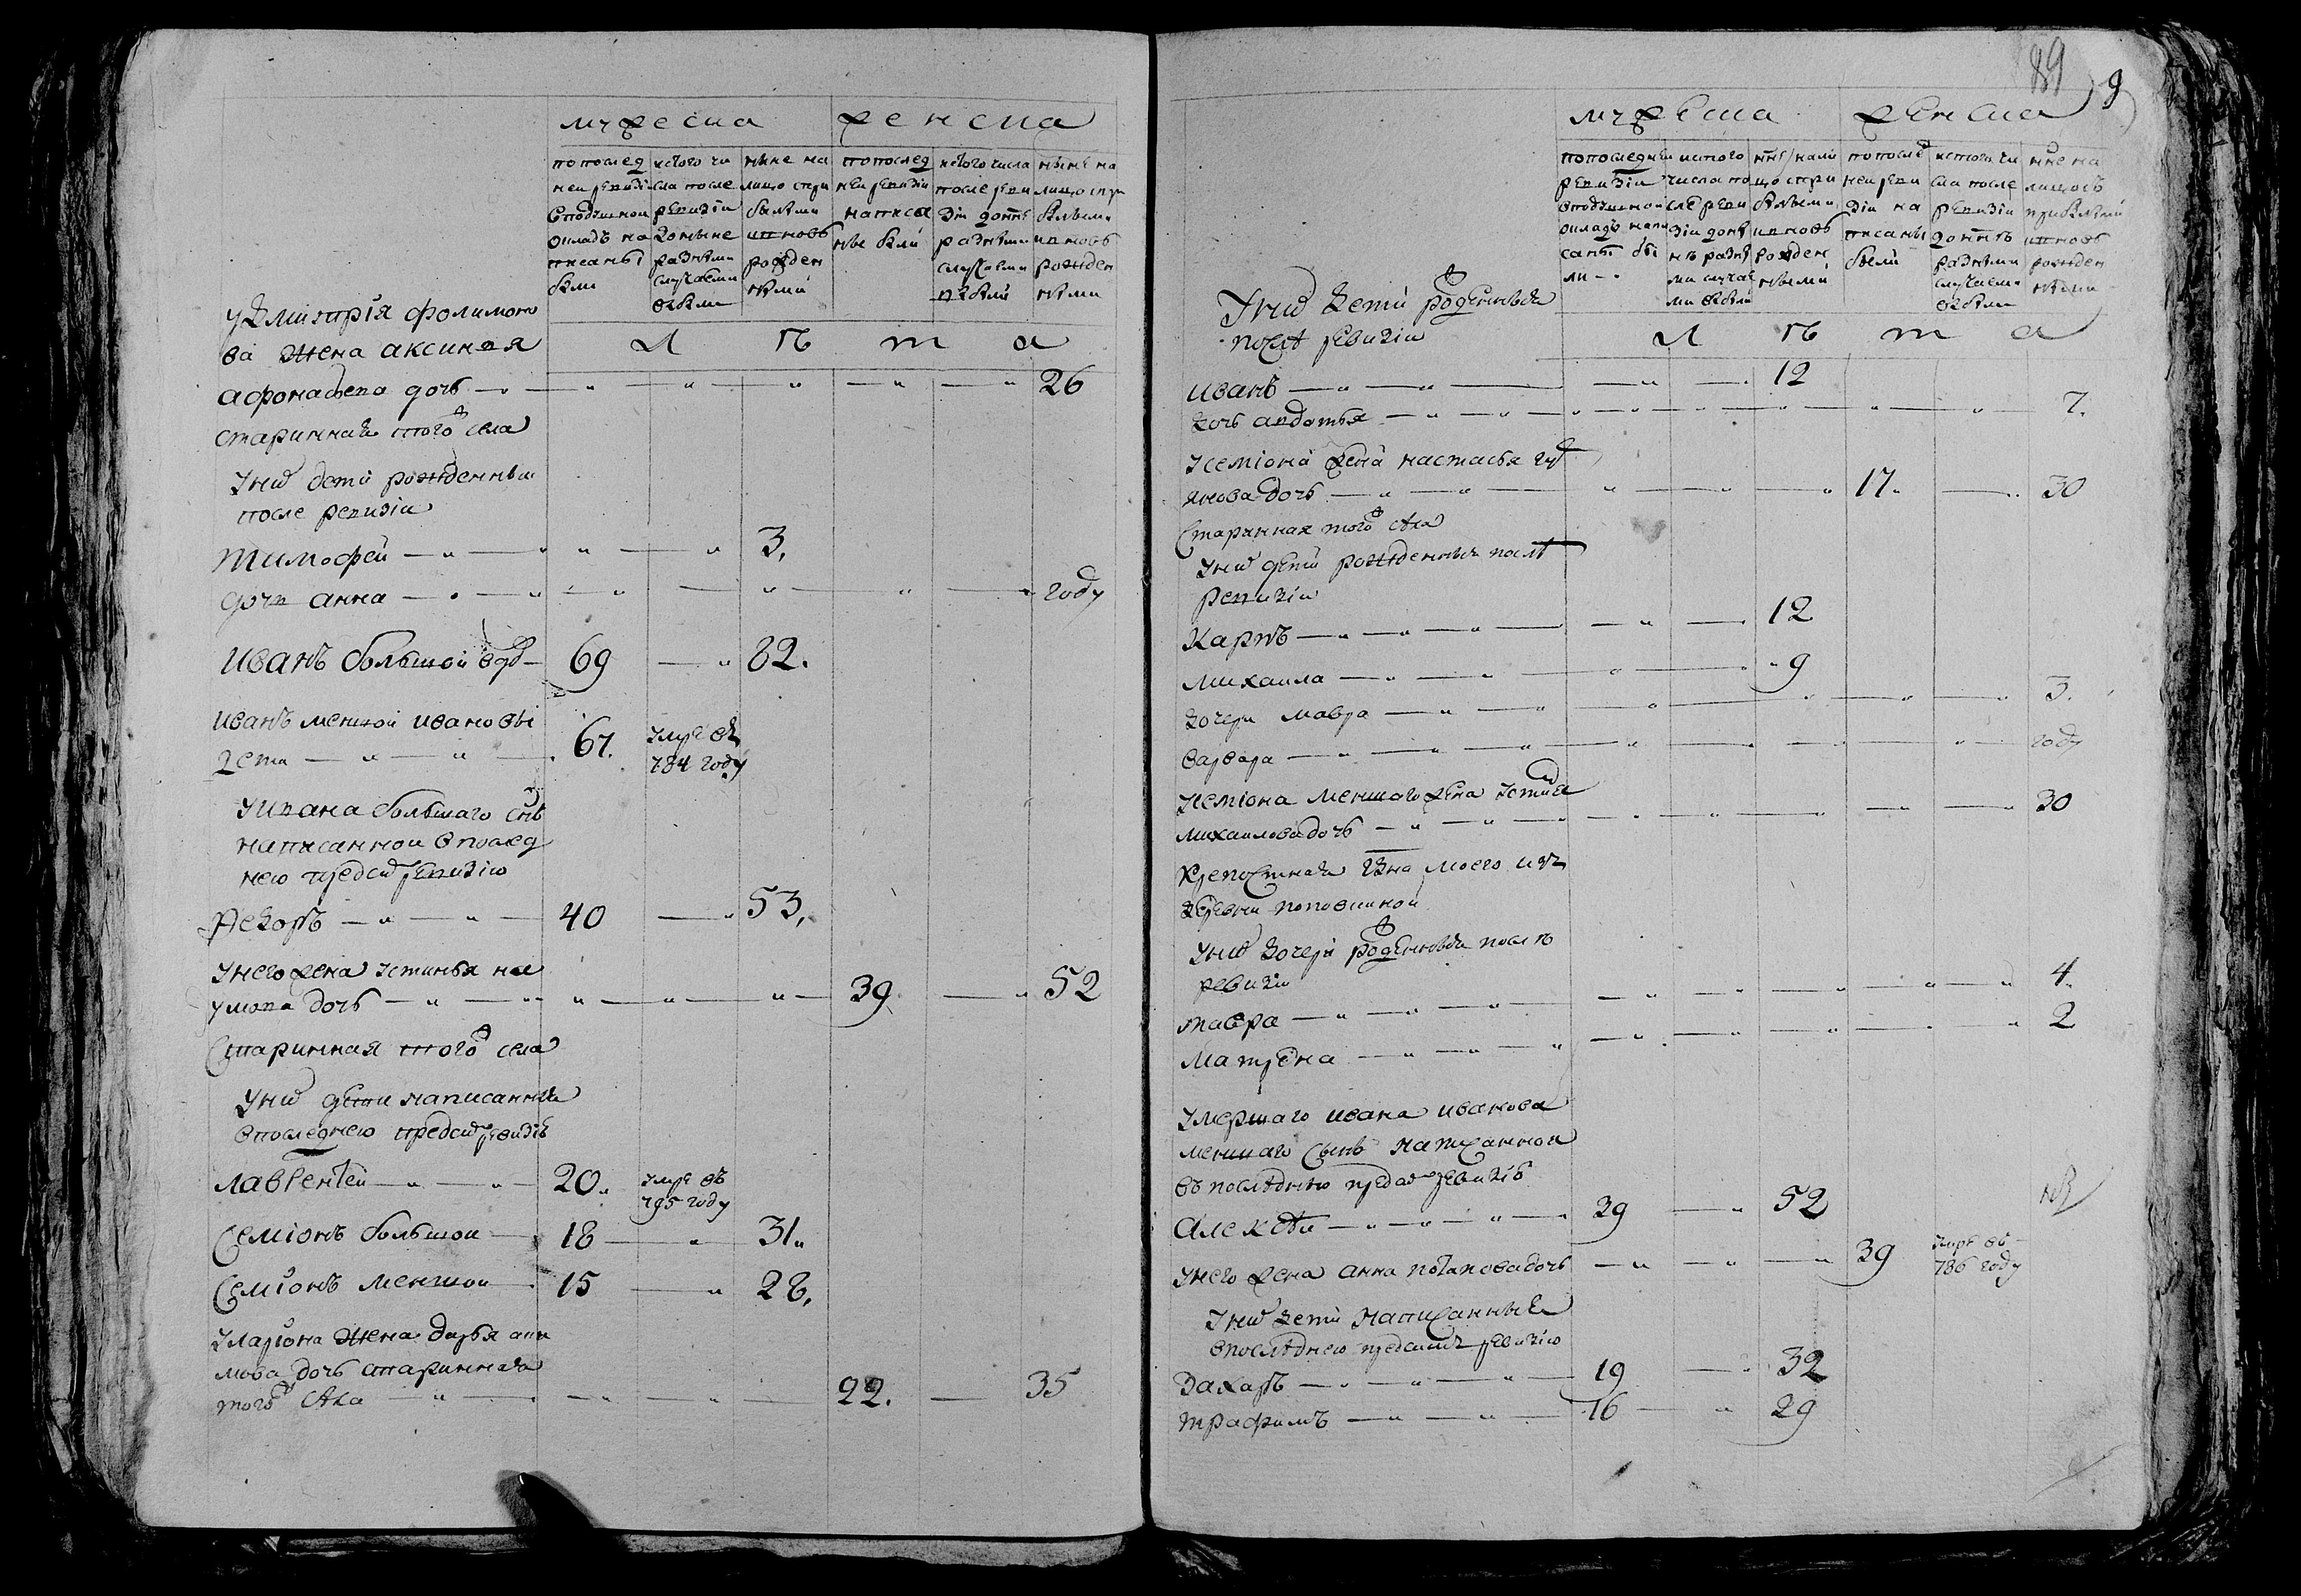 мужеска женска
по послед
ней ревизіи
в подушной
окладъ на
писаны
были
ис того чи
сла после
ревизіи
до ныне
разными
случаеми
выбыли
ныне на
лицо спри
былыми
и вновь
рожден
ными
по послед
ней ревизіи
написа
ны были
ис того числа
после реви
зіи до нне
разными
случаеми
выбыли
ныне на
лицо спри
былыми
и вновь
рожден
ными
л ѣ т а
У дмитрія филимоно
ва жена аксинья
афонасьева дочь 26
старинная того ж села
У них дети рожденныи
после ревизіи
тимофей 3,
дочь анна году
Иванъ большой 69 82.
Иванъ меншой ивановы
дети 67. умре въ
784 году
У ивана большаго снъ
написанной в послед
нею пред сим ревизію
Федоръ 40 53,
У него жена устинья на
умова дочь 39 52
Старинная того ж села
У них дети написанныя
в последнею пред сим ревизіѣ
лаврентей 20. умре въ
795 году
Семіонъ большои 18 31.
Семіонъ меншои 15 28,
У ларіона жена дарья
дочь старинная
того ж села 22. 35
89 9
мужеска женска
по последней
ревизіи
в подушной
окладъ напи
саны бы
ли
ис того
числа по
сле реви
зіи до нне
разны
ми случае
ми выбыли
нне на ли
цо спри
былыми
и вновь
рожден
ными
по после
ней реви
зіи на
писаны
были
ис того чи
сла после
ревизіи
до ннѣ
разными
случаеми
выбыли
нне на
лицо съ
прибылыми
и вновь
рожден
ными
л ѣ т а
У них дети рожденныя
послѣ ревизіи
иванъ 12
дочь авдотья 7.
У семіона жена настасья
дочь 17. 30
Старинная того ж села
У них дети рожденныя послѣ
ревизіи
Карпъ 12
михаила 9
дочери мавра 3.
варвара году
У семіона меншаго жена устинья
михаилова дочь 30
крепостная гдна моего изъ
деревни поповкиной
У них дочери рожденныя послѣ
ревизіи
мавра 4.
матрена 2
Умершаго ивана иванова
меншаго сынъ написанной
въ последнею пред сим ревизіѣ
Алексѣи 39 52
У него жена анна потапова дочь 39 умре въ
786 году
У них дети написанныя
в последнею пред симъ ревизію
Захаръ 19 32
трафимъ 16 29